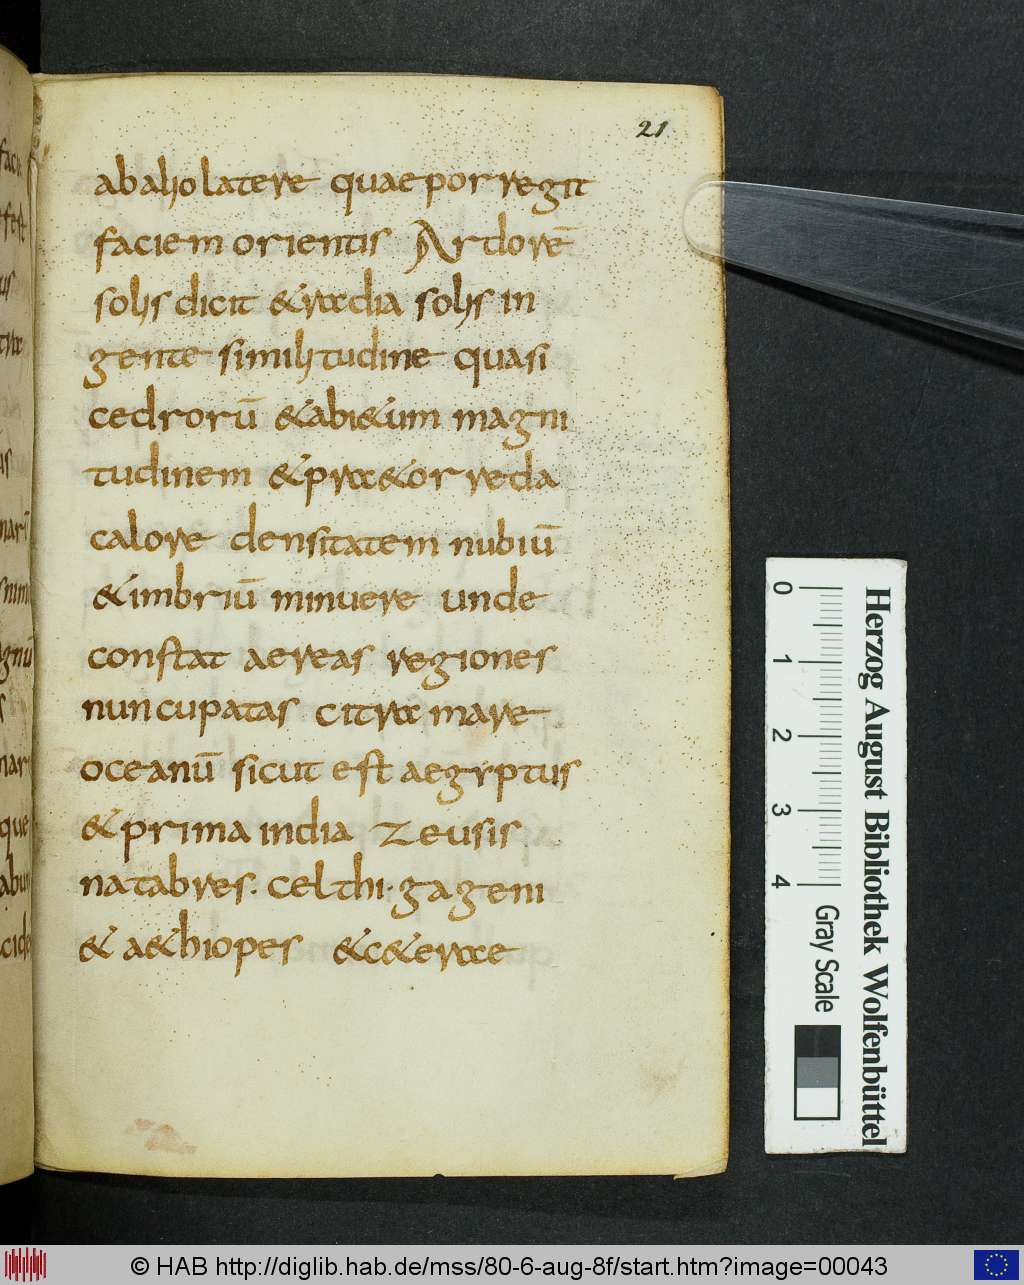 21
abalio latere quae porregit
faciem orientis Ardorē
solis dicit & radia solis in
gente similitudine quasi
cedrorū & abi&um magni
tudinem & pra&orreda
calore densitatem nubiū
& imbriū minuere unde
constat aereas regiones
nuncupatas citra mare
oceanū sicut est aegyptus
& prima india Zeusis
natabres. celthi. gageni
& a&hiopes &c&erae
Herzog August Bibliothek Wolfenbüttel
0 1 2 3 4 Gray Scale
© HAB http://diglib.hab.de/mss/80-6-aug-8f/start.htm?image=00043